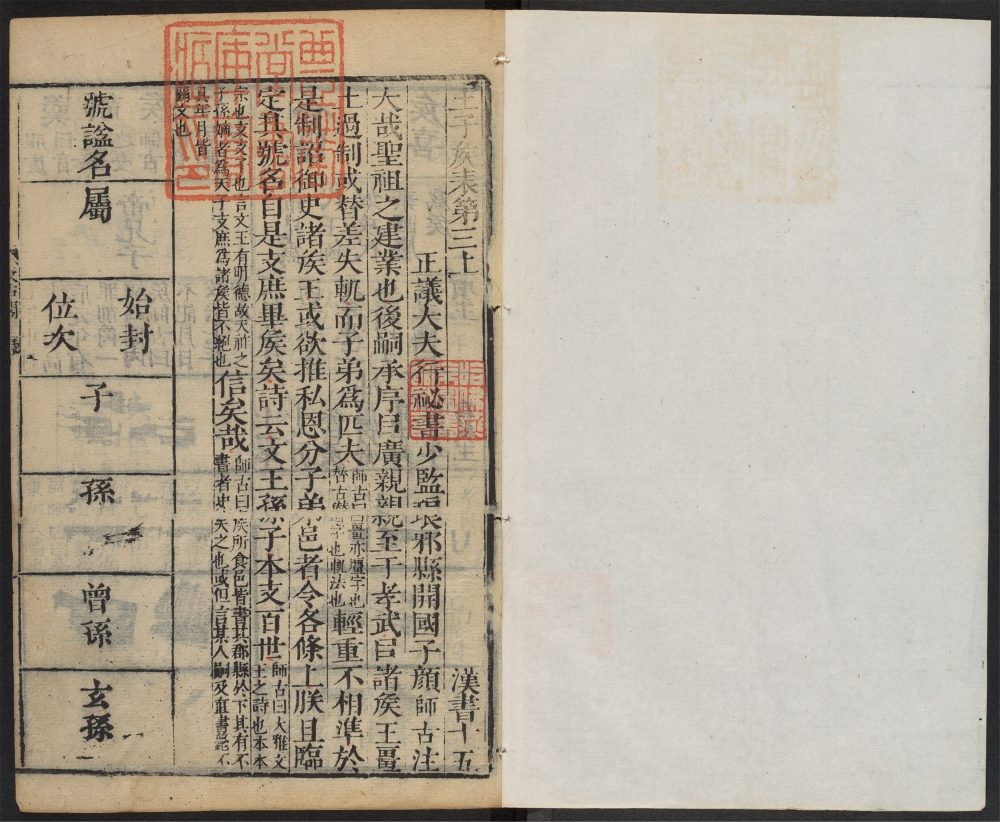 王子矦表第三上 漢書十五
正議大夫行祕書少監琅邪縣開國子顔師古注
大哉聖祖之建業也後嗣承序㠯廣親親至于孝武㠯諸矦王畺
土過制或替差失軌而子弟爲匹夫 師古曰畺亦疆字也 軌法也 輕重不相準於
是制詔御史諸矦王或欲推私恩分子弟邑者令各條上朕且臨
定其號名自是支庶畢矦矣詩云文王孫子本支百世 師古曰大雅文王之詩也本本
宗也支支子也言文王有明德故天祚之子孫嫡者爲天子支庶爲諸矦皆不絕也 信矣哉 師古曰矦所食邑皆書其郡縣於下其有不書者史失之也或但言某人嗣及直書薨不
具年月皆
闕文也
號謚名
屬
始封
位次
子
孫
曾孫
玄孫